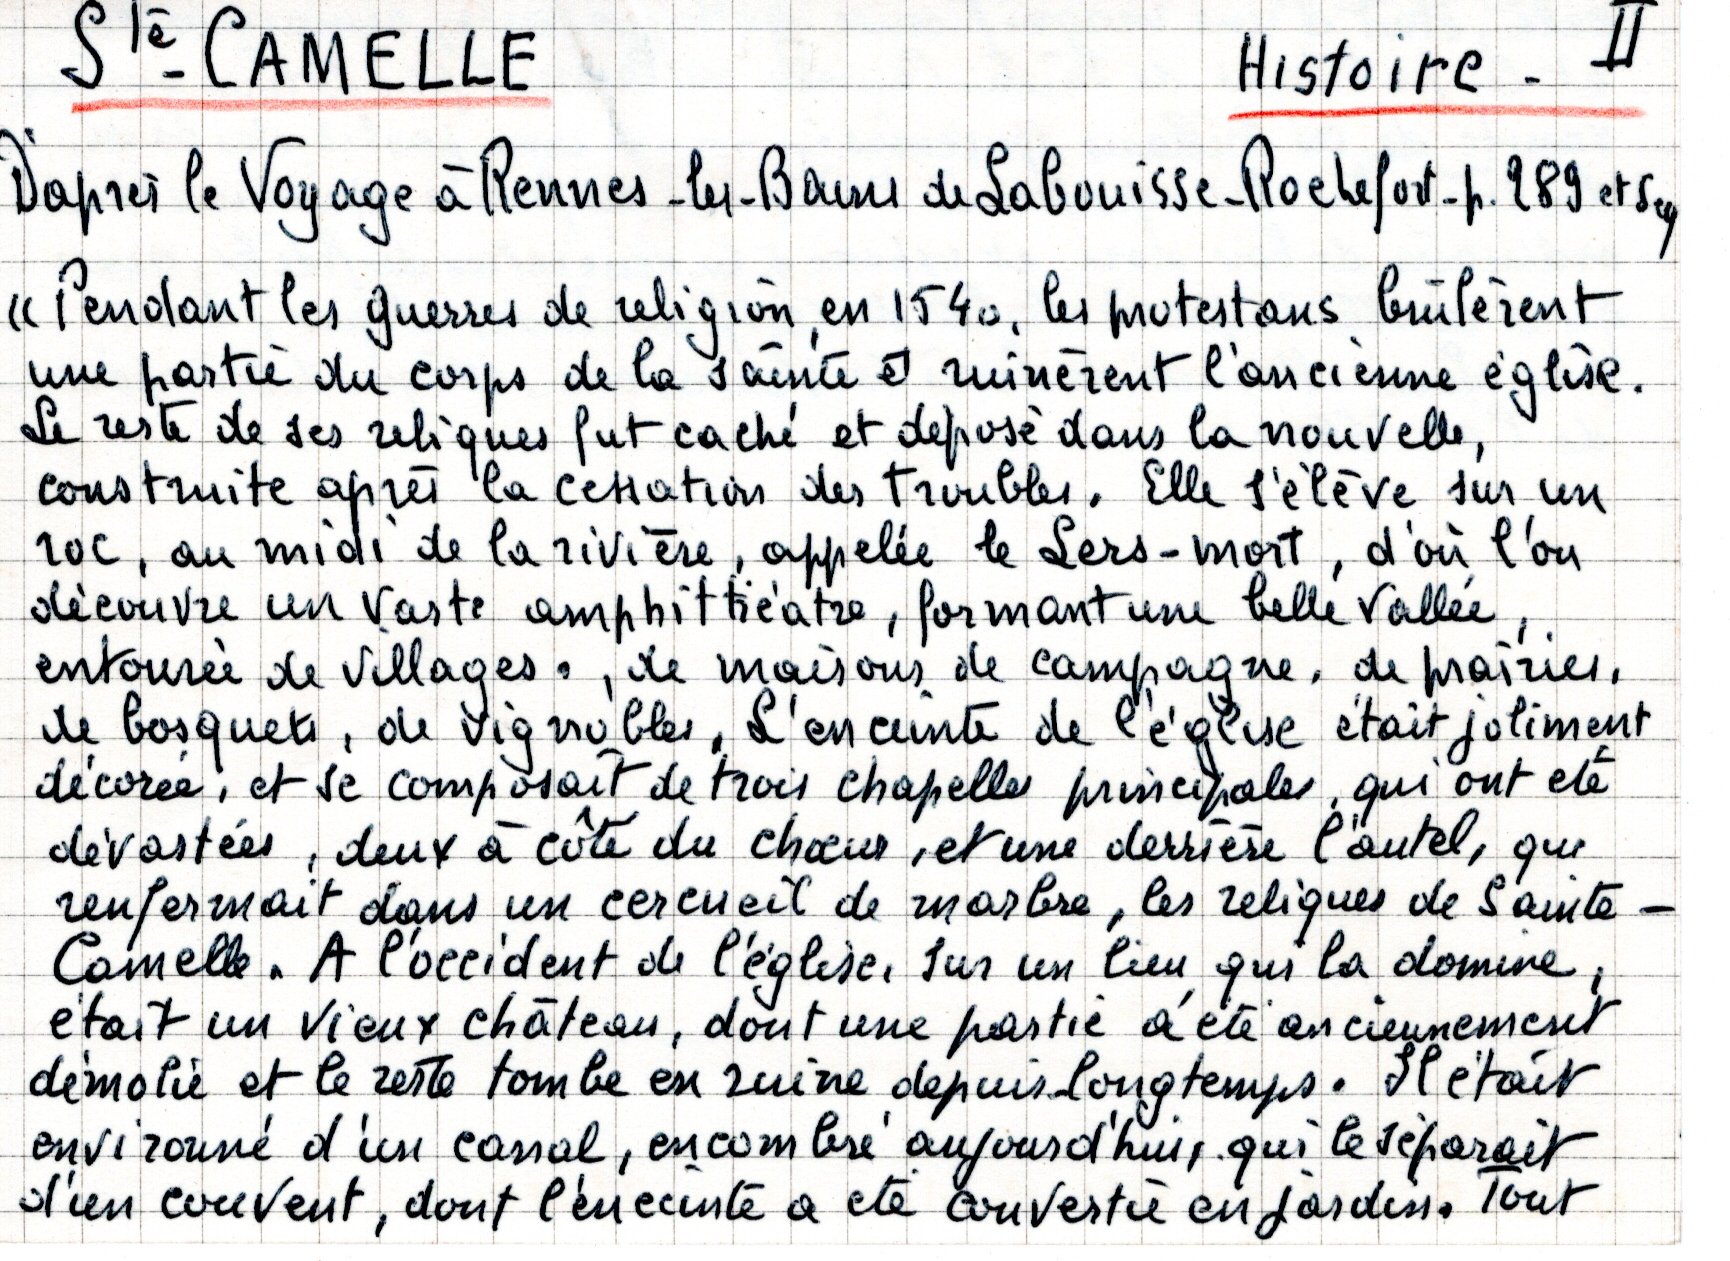 Ste-CAMELLE Histoire - II
D'après le Voyage à Rennes-les-Bains de Labouisse-Rochefort - p. 289 et seq
« Pendant les guerres de religion, en 1540, les protestans brûlèrent
une partie du corps de la sainte et ruinèrent l'ancienne église.
Le reste de ses reliques fut caché et déposé dans la nouvelle,
construite après la cessation des troubles. Elle s'élève sur un
roc, au midi de la rivière, appelée le Lers-mort, d'où l'on
découvre un vaste amphitthéatre, formant une belle vallée,
entourée de villages, de maisons de campagne, de prairies,
de bosquets, de vignobles. L'enceinte de l'église était joliment
décorée, et se composait de trois chapelles principales, qui ont été
dévastées, deux à côté du chœur, et une derrière l'autel, qui
renfermait dans un cercueil de marbre, les reliques de Sainte-
Camelle. A l'occident de l'église, sur un lieu qui la domine,
était un vieux château, dont une partie a été anciennement
démolie et le reste tombe en ruine depuis longtemps. Il était
environné d'un canal, encombré aujourd'hui, qui le séparait
d'un couvent, dont l'enceinte a été convertie en jardin. Tout